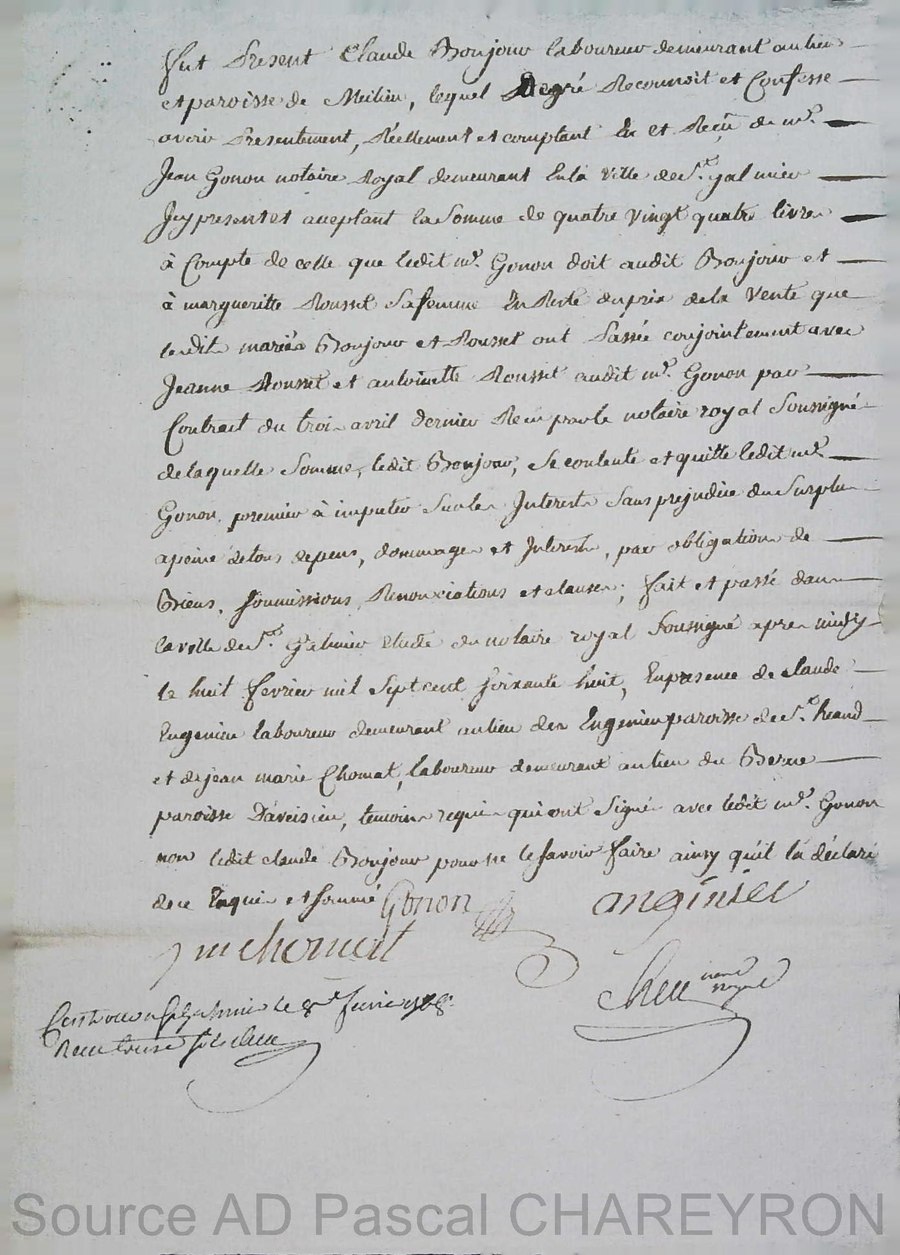 fut Present Claude Bonjour laboureur demeurant au lieu
et paroisse de Meilieu, lequel Degré Reconnoit et Confesse
avoir Presentement, Réellement et comptant Eu et Reçu de mr.
Jean Gonon notaire Royal demeurant En la ville de St. galmier
Icy present et acceptant la Somme de quatre vingt quatre livres
à Compte de celle que ledit mr. Gonon doit audit Bonjour et
à margueritte Rousset Sa femme En Reste du prix de la Vente que
lesdits mariés Bonjour et Rousset ont Passée conjointement avec
Jeanne Rousset et antoinette Rousset audit mr. Gonon par
Contrat du trois avril dernier Reçu par le notaire royal Soussigné
de laquelle Somme, ledit Bonjour, Se contente et quitte ledit mr.
Gonon, premier à imputer Sur les Interests Sans prejudice du Surplus
a peine de tous depens, dommages et Interests, par obligation de
Biens, soumissions, Renonciations et clauses; fait et passé dans
la ville de St. Galmier etude du notaire royal Soussigné apres midy
le huit fevrier mil Sept cent soixante huit, En presence de claude
Engenieu laboureur demeurant au lieu des Engenieu paroisse de St. heand
et de jean marie Chomat, laboureur demeurant au lieu du Berne
paroisse D'aveisieu, temoins requis qui ont Signé avec ledit mr. Gonon
non ledit claude Bonjour pour ne le Savoir faire ainsy qu'il la déclaré
de ce Enquis et sommé Gonon anginieu
jm chomat
nore royal
le 8e fevrier 1768
Recu
Source AD Pascal CHAREYRON